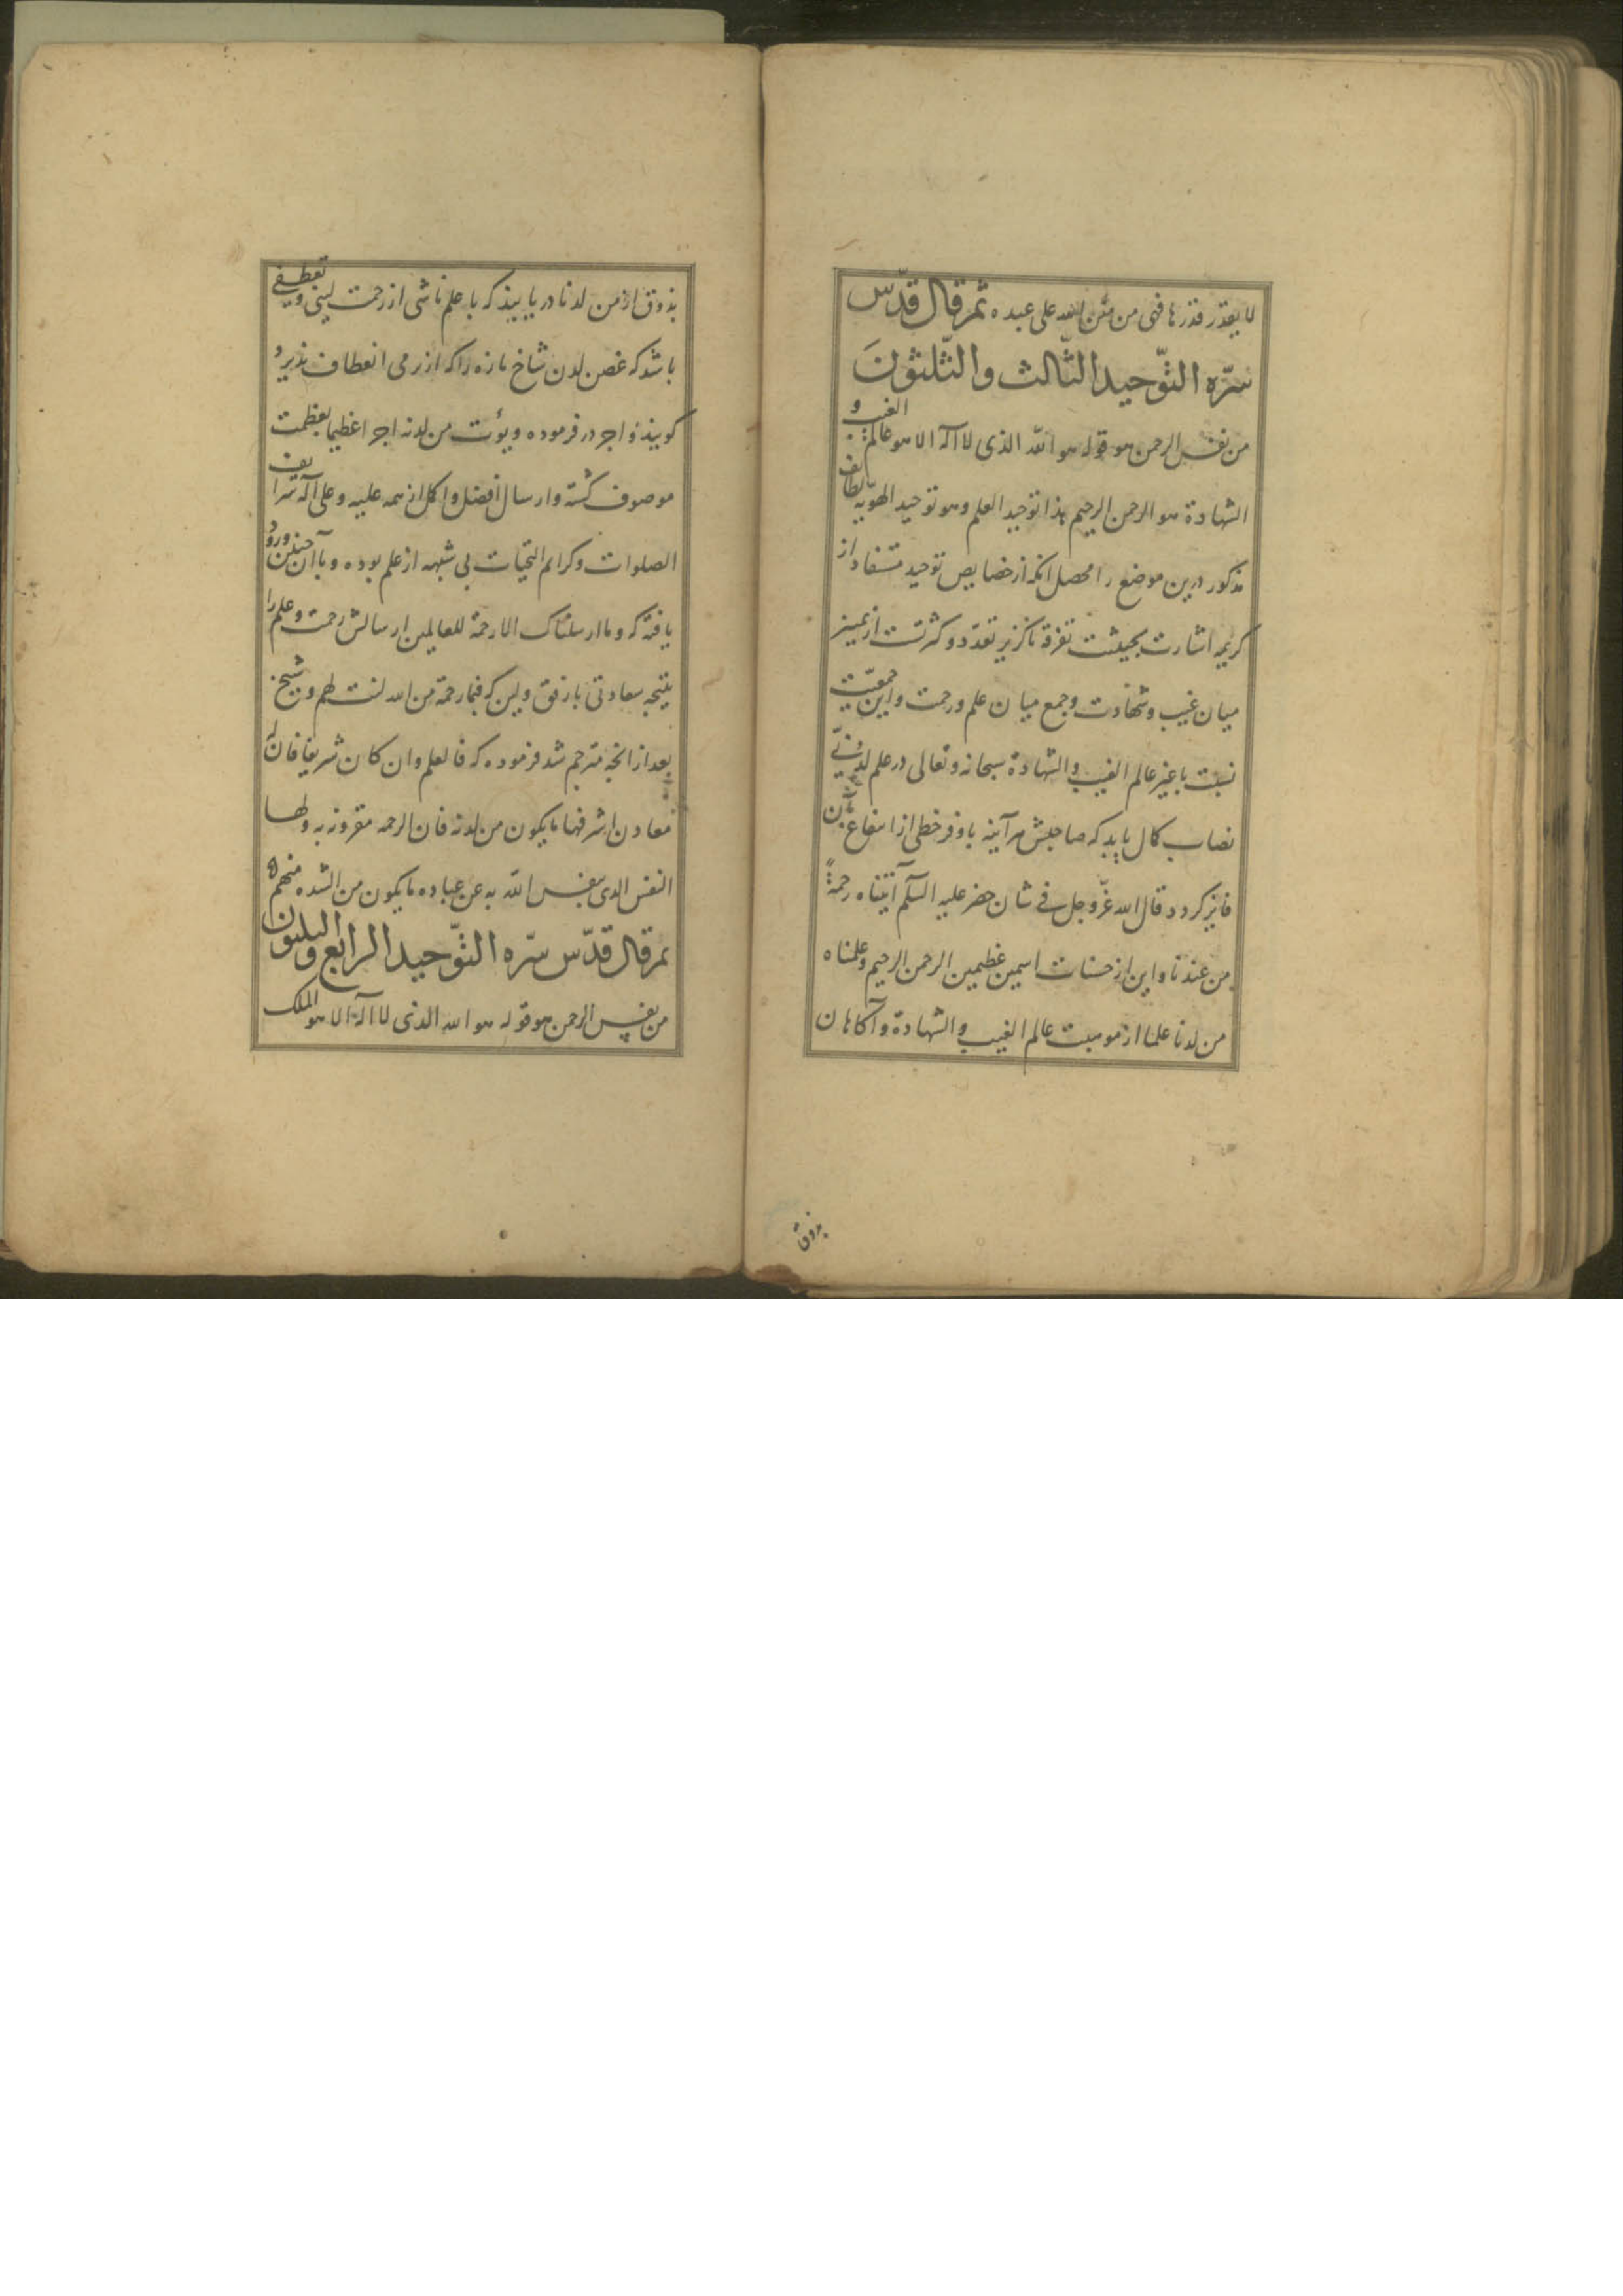 لا یقدر قدرها فهی من منن الله علی عبده ثم قال قدّس
سرّه التّوحید الثّالث والثّلثون
من نفس الرحمن هو قوله هو الله الذی لا اله الا هو عالم الغیب و
الشهادة هو الرحمن الرحیم هذا توحید العلم و هو توحید الهویه
مذکور درین موضع را محصل انکه از خصایص توحید مستفاد از
کریمه اشارت بحیثیت تفرقه ناکزیر تعدّد و کثرتست از تمییز
میان غیب و شهادت و جمع میان علم و رحمت و این جمعیّت
نسبت با غیر عالم الغیب و الشهادة سبحانه و تعالی در علم لدنّی
نصاب کمال یابد که صاحبش هر آینه باوفر حظی از انتفاع بآن
فایز کردد قال الله عزّ و جل فی شان خضر علیه السّلم آتیناه رحمةً
من عندنا و این از حسنات اسمین عظیمین الرحمن الرحیم و علمناه
من لدنا علما از موهبت عالم الغیب و الشهادة و آکاهان
بذوق
بذوق از من لدنا دریابند که با علم ناشی از رحمت لینی و تعطفی
باشد که غصن لدن شاخ تازه را که از نرمی انعطاف پذیرد
کویند و اجر در فرموده و یؤت من لدنه اجرا عظیما بعظمت
موصوف کشته و ارسال افضل و اکمل از همه علیه و علی آله شرایف
الصلوات و کرایم التحیات بی شبهه از علم بوده و بآن چنین ورود
یافته که و ما ارسلناک الا رحمة للعالمین ارسالش رحمت و علم را
نتیجه سعادتی با رفق و لین که فبما رحمة من الله لنت لهم و شیخ
بعد از انچه مترجم شد فرموده که فالعلم و ان کان شریفا فان له
معادن اشرفها ما یکون من لدنه فان الرحمه مقرونه به ولها
النفس الذی ینفس الله به عن عباده ما یکون من الشده منهم
ثم قال قدّس سرّه التّوحید الرابع والثلثون
من نفس الرحمن هو قوله هو الله الذی لا اله الا هو الملک